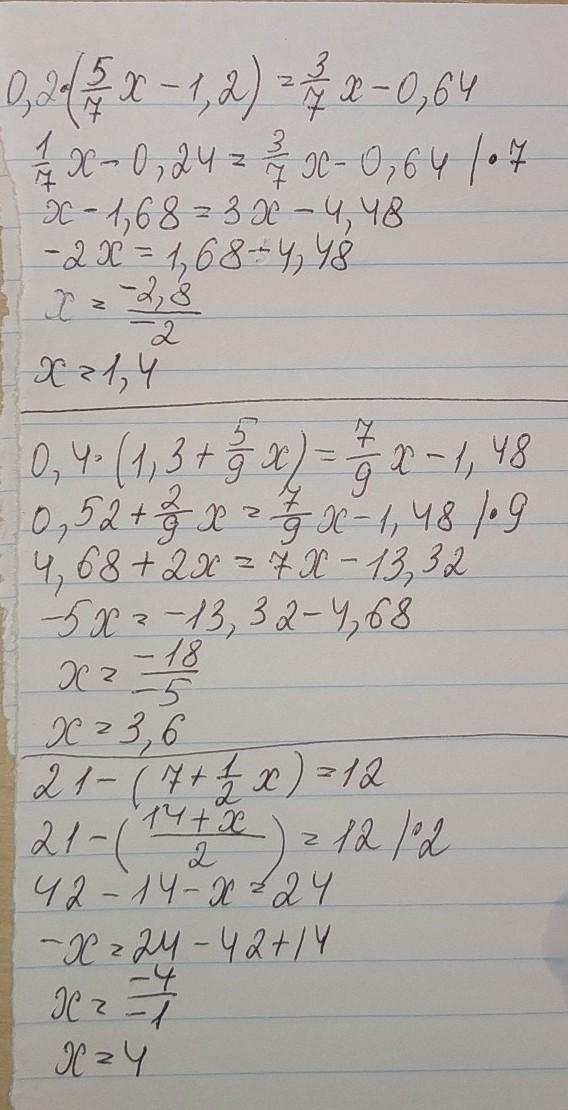 0,2·(5/7 x − 1,2) = 3/7 x − 0,64
1/7 x − 0,24 = 3/7 x − 0,64 / · 7
x − 1,68 = 3x − 4,48
−2x = 1,68 − 4,48
x = −2,8/−2
x = 1,4
0,4·(1,3 + 5/9 x) = 7/9 x − 1,48
0,52 + 2/9 x = 7/9 x − 1,48 / · 9
4,68 + 2x = 7x − 13,32
−5x = −13,32 − 4,68
x = −18/−5
x = 3,6
21 − (7 + 1/2 x) = 12
21 − (14 + x/2) = 12 / · 2
42 − 14 − x = 24
−x = 24 − 42 + 14
x = −4/−1
x = 4